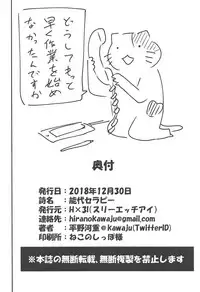 どうしてもって
早く作業を始め
なかったんですか
奥付
発行日：2018年12月30日
誌名：能代セラピー
発行元：H×3I(スリーエッチアイ)
連絡先：hiranokawaju@gmail.com
著者：平野河重@kawaju(TwitterID)
印刷所：ねこのしっぽ様
※本誌の無断転載、無断複製を禁止します